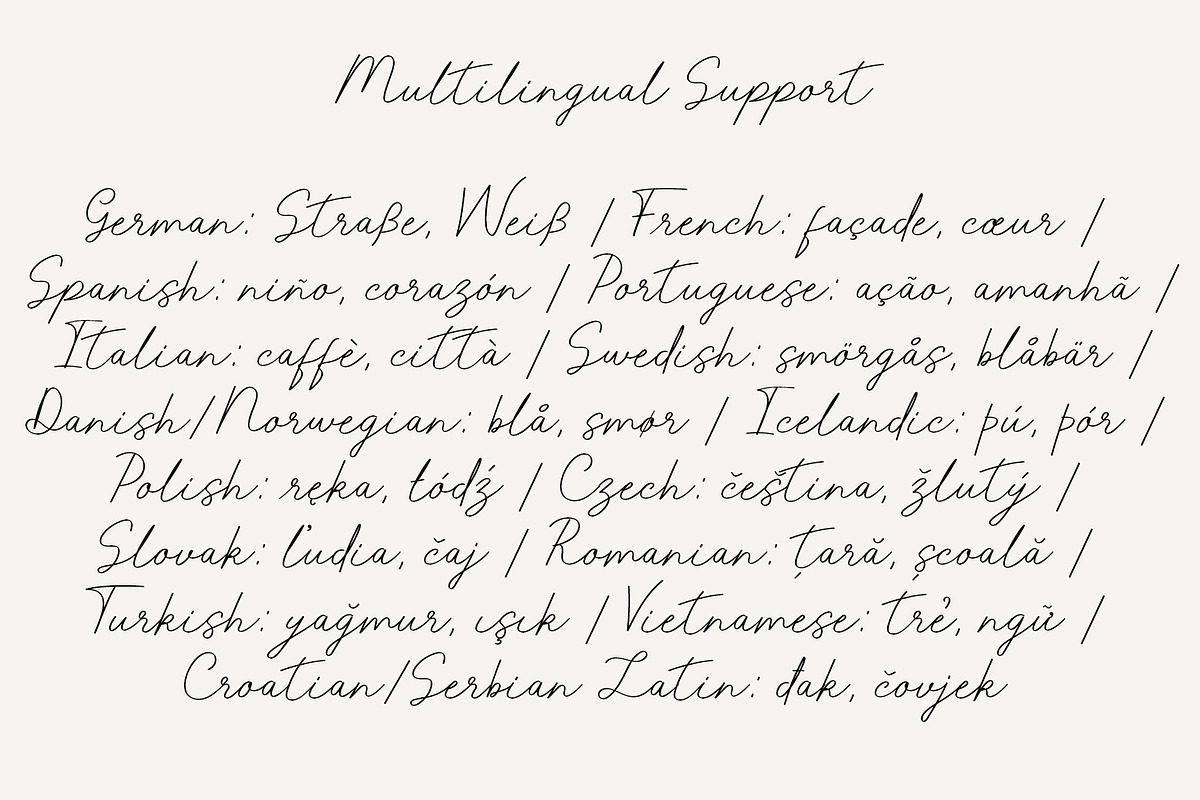 Multilingual Support
German: Straße, Weiß / French: façade, cœur /
Spanish: niño, corazón / Portuguese: ação, amanhã /
Italian: caffè, città / Swedish: smörgås, blåbär /
Danish/Norwegian: blå, smør / Icelandic: þú, þór /
Polish: ręka, łódź / Czech: čeština, žlutý /
Slovak: ľudia, čaj / Romanian: Țară, școală /
Turkish: yağmur, ışık / Vietnamese: trẻ, ngữ /
Croatian/Serbian Latin: đak, čovjek